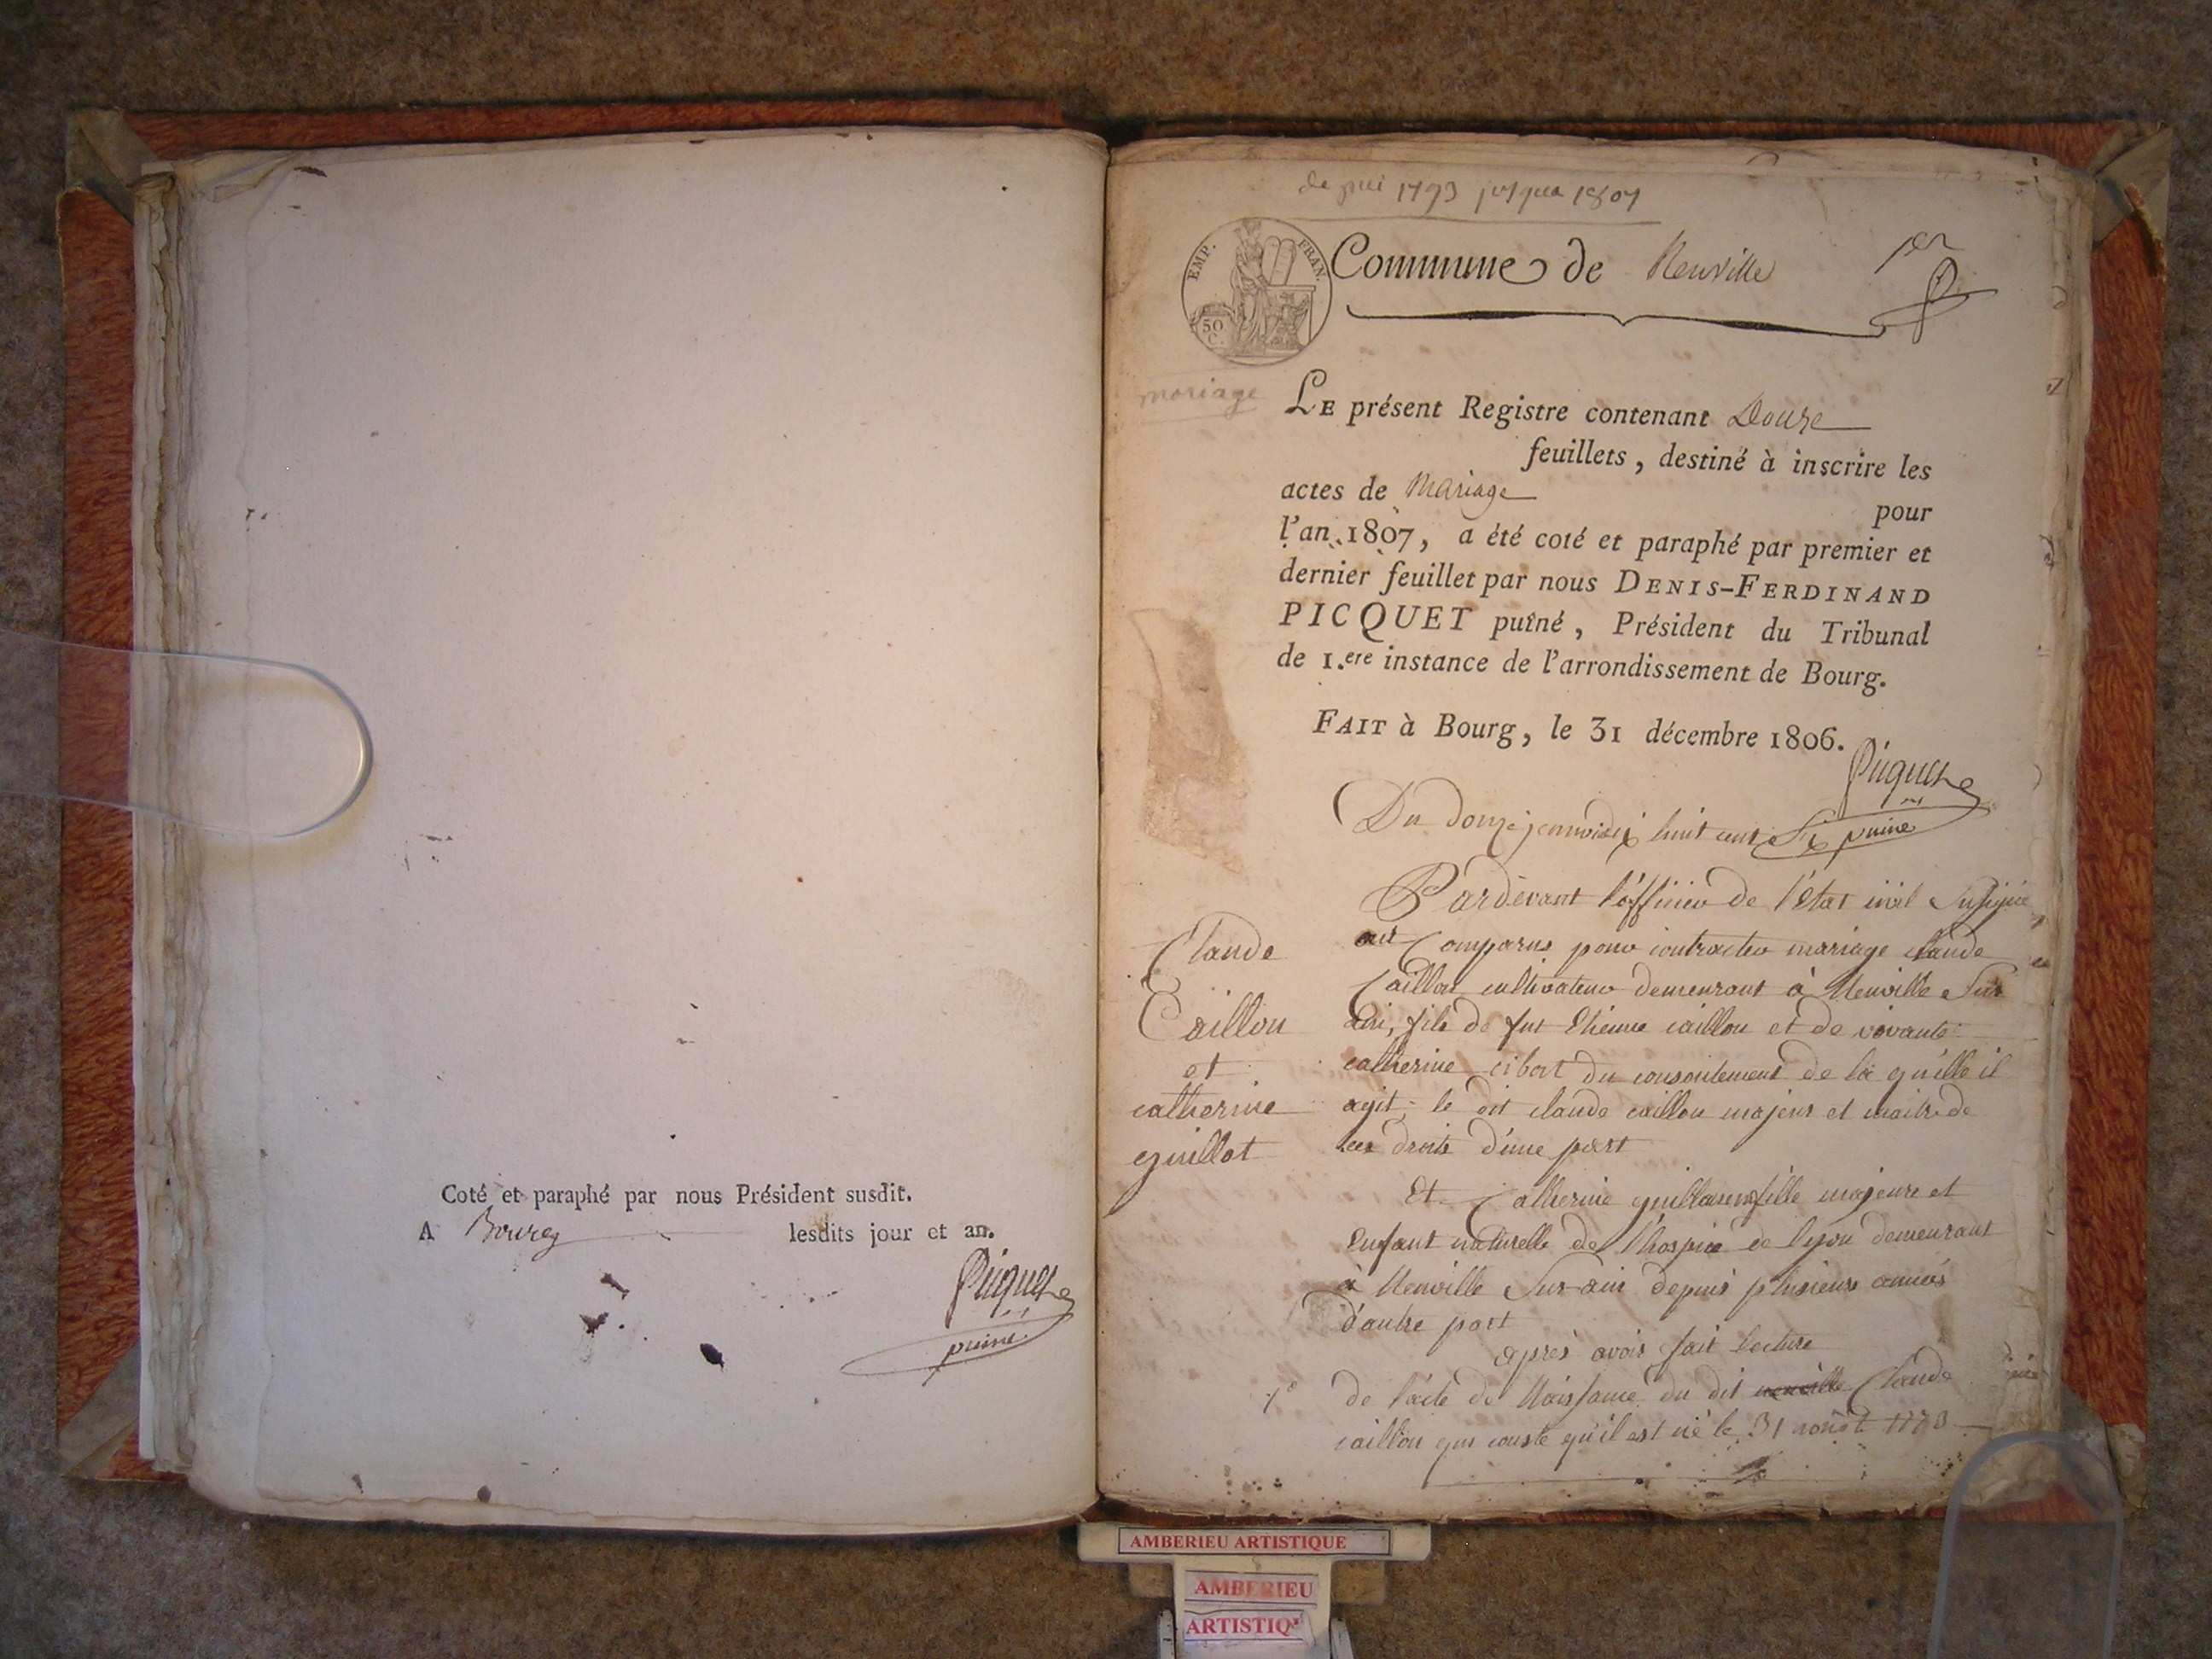 Coté et paraphé par nous Président susdit.
A Bourg lesdits jour et an.
Picquet
puiné.
de puis 1793 jusqua 1807
EMP. FRAN.
50
C.
Commune de Neuville
1er
mariage
LE présent Registre contenant Douze
feuillets, destiné à inscrire les
actes de Mariage
pour
l'an 1807, a été coté et paraphé par premier et
dernier feuillet par nous DENIS-FERDINAND
PICQUET puîné, Président du Tribunal
de 1.ere instance de l'arrondissement de Bourg.
FAIT à Bourg, le 31 décembre 1806.
Picquet
puiné
Du douze janvier huit cent
Claude
Caillou
et
catherine
guillot
Pardevant l'officier de l'état civil
ont Comparus pour contracter mariage claude
Caillou cultivateur demeurant à Neuville Sur
ain, fils de fut Etienne caillou et de vivante
catherine cibert du consentement de la quelle il
agit; le dit claude caillou majeur et maitre de
ses droits d'une part
Et Catherine fille majeure et
Enfant naturelle de l'hospice de lyon demeurant
à Neuville Sur ain depuis plusieurs années
d'autre part
après avoir fait lecture
1° de l'acte de Naissance du dit Claude
caillou qui conste qu'il est né le 31
AMBERIEU ARTISTIQUE
AMBERIEU
ARTISTIQ